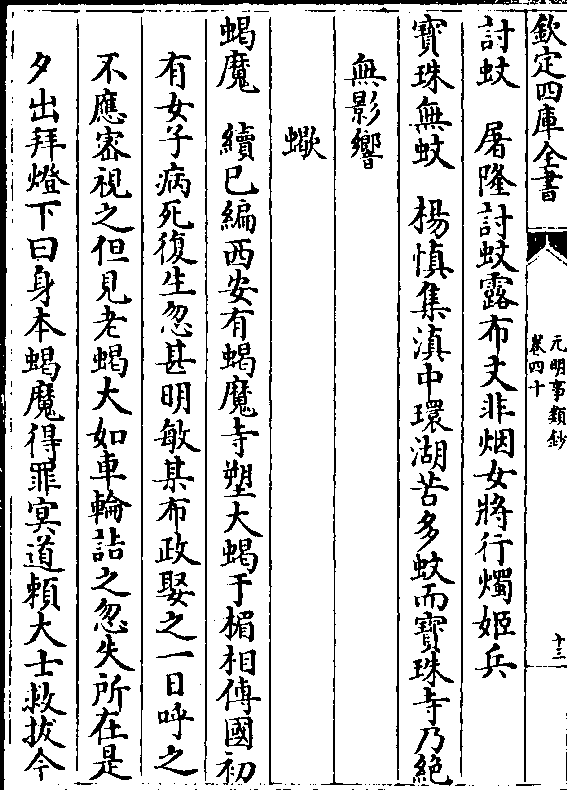 欽定四庫全書
元明事類鈔
卷四十
十三
討蚊　屠隆討蚊露布丈非烟女將行燭姬兵
寳珠無蚊　楊慎集滇中環湖苦多蚊而寳珠寺乃絶
無影響
蠍
蝎魔　續已編西安有蝎魔寺塑大蝎于楣相傳國初
有女子病死復生忽甚明敏某布政娶之一日呼之
不應宻視之但見老蝎大如車輪詰之忽失所在是
夕出拜燈下曰身本蝎魔得罪冥道頼大士救拔今